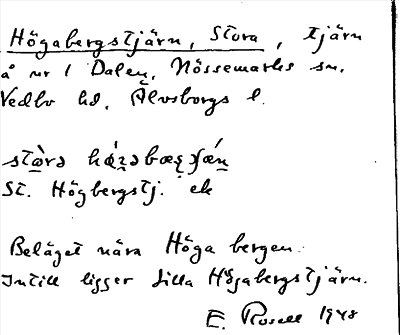 Högabergstjärn, Stora, tjärn
å nr 1 Dalen, Nössemarks sn.
Vedbo hd, Älvsborgs l.
St. Högbergstj. ek
Beläget nära Höga bergen.
Intill ligger Lilla Högabergstjärn.
E. Rosell 1948